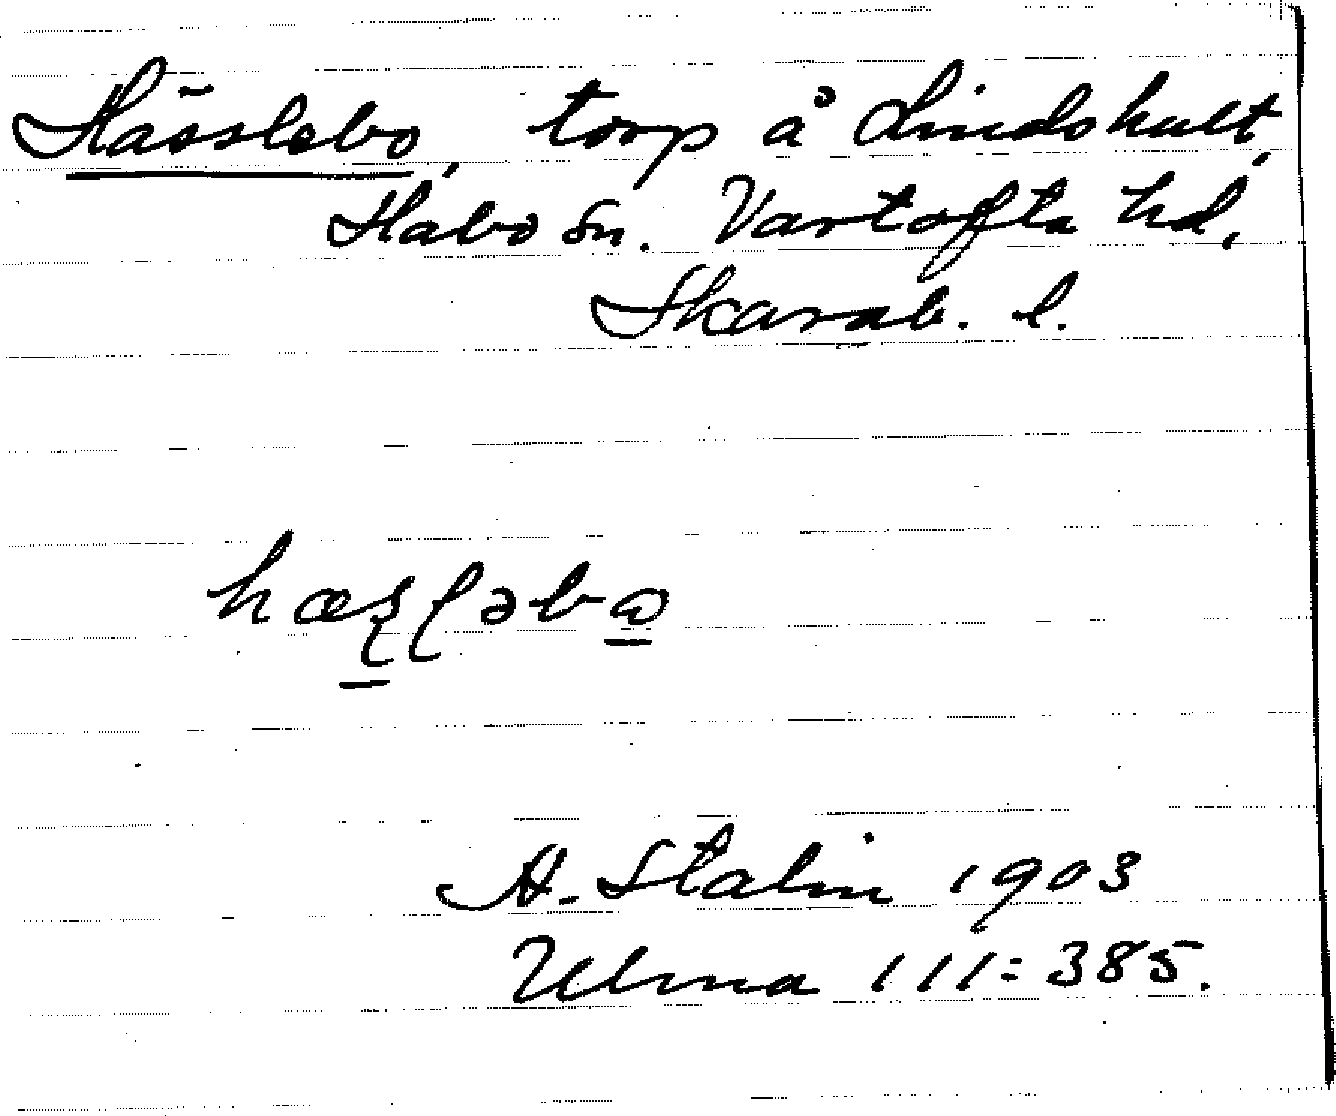 Hässlebo, torp å Lindshult,
Habo sn. Vartofta hd,
Skarab. l.
A. Stalin 1903
Ulma 111:385.